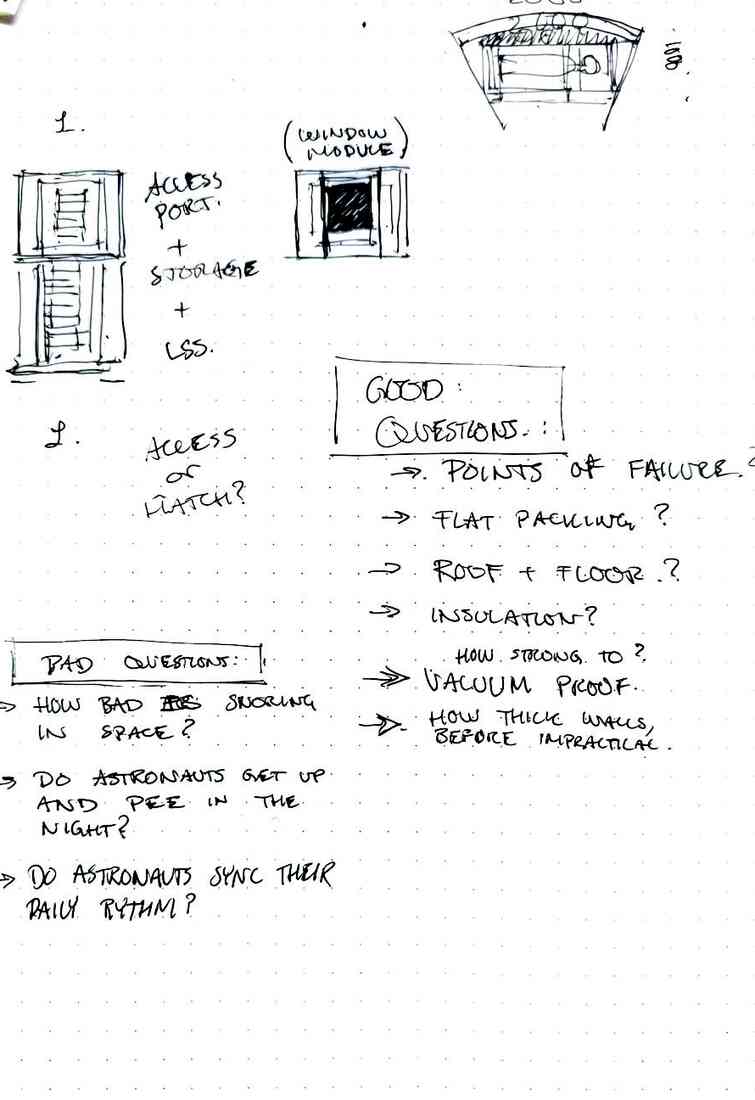 2600
1.
ACCESS
PORT.
+
STORAGE
+
LSS.
(WINDOW
MODULE)
1.
ACCESS
or
HATCH?
GOOD:
QUESTIONS.:
→ POINTS OF FAILURE.?
→ FLAT PACKING?
→ ROOF + FLOOR.?
→ INSULATION?
HOW STRONG TO?
→ VACUUM PROOF.
→ HOW THICK WALLS,
BEFORE IMPRACTICAL.
BAD QUESTIONS:
→ HOW BAD IS SNORING
IN SPACE?
→ DO ASTRONAUTS GET UP
AND PEE IN THE
NIGHT?
→ DO ASTRONAUTS SYNC THEIR
DAILY RYTHM?